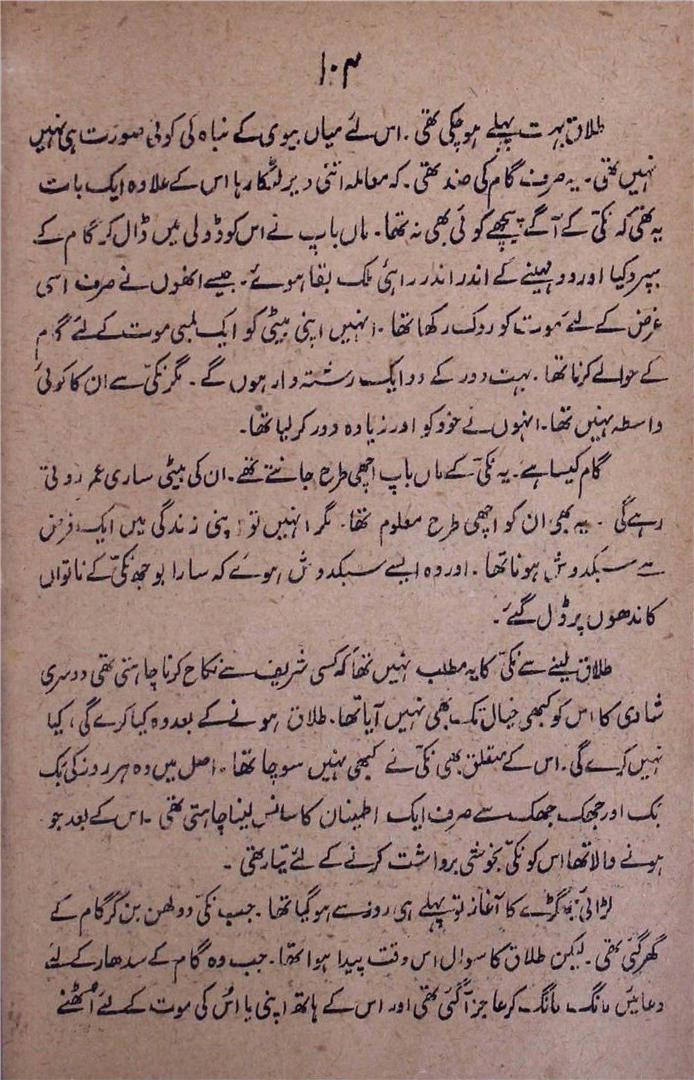 ۱۰۴
طلاق بہت پہلے ہو چکی تھی۔ اس لئے میاں بیوی کے نباہ کی کوئی صورت ہی نہیں
نہیں تھی۔ یہ صرف گام کی ضد تھی۔ کہ معاملہ اتنی دیر لٹکا رہا اس کے علاوہ ایک بات
یہ تھی کہ نکّی کے آگے پیچھے کوئی بھی نہ تھا۔ ماں باپ نے اس کو ڈولی میں ڈال کر گام کے
سپرد کیا اور دو مہینے کے اندر اندر راہیٔ ملک بقا ہوئے۔ جیسے انھوں نے صرف اسی
غرض کے لئے موت کو روک رکھا تھا۔ انہیں اپنی بیٹی کو ایک لمبی موت کے لئے گام
کے حوالے کرنا تھا۔ بہت دور کے دو ایک رشتہ دار ہوں گے۔ مگر نکّی سے ان کا کوئی
واسطہ نہیں تھا۔ انہوں نے خود کو اور زیادہ دور کر لیا تھا۔
گام کیسا ہے۔ یہ نکّی کے ماں باپ اچھی طرح جانتے تھے۔ ان کی بیٹی ساری عمر روتی
رہے گی۔ یہ بھی ان کو اچھی طرح معلوم تھا۔ مگر انہیں تو اپنی زندگی میں ایک فرض
سے سبکدوش ہونا تھا۔ اور وہ ایسے سبکدوش ہوئے کہ سارا بوجھ نکّی کے ناتواں
کاندھوں پر ڈال گئے۔
طلاق لینے سے نکّی کا یہ مطلب نہیں تھا کہ کسی شریف سے نکاح کرنا چاہتی تھی دوسری
شادی کا اس کو کبھی خیال تک بھی نہیں آیا تھا۔ طلاق ہونے کے بعد وہ کیا کرے گی، کیا
نہیں کرے گی۔ اس کے متعلق بھی نکّی نے کبھی نہیں سوچا تھا۔ اصل میں وہ ہر روز کی بک
بک اور جھک جھک سے صرف ایک اطینان کا سانس لینا چاہتی تھی۔ اس کے بعد جو
ہونے والا تھا اس کو نکّی بخوشی برداشت کرنے کے لئے تیار تھی۔
لڑائی جھگڑے کا آغاز تو پہلے ہی روز سے ہو گیا تھا۔ جب نکّی دولھن بن کر گام کے
گھر گئی تھی۔ لیکن طلاق کا سوال اس وقت پیدا ہوا تھا۔ جب وہ گام کے سدھار کے لئے
دعائیں مانگ مانگ کر عاجز آ گئی تھی اور اس کے ہاتھ اپنی یا اُس کی موت کے لئے اُٹھنے